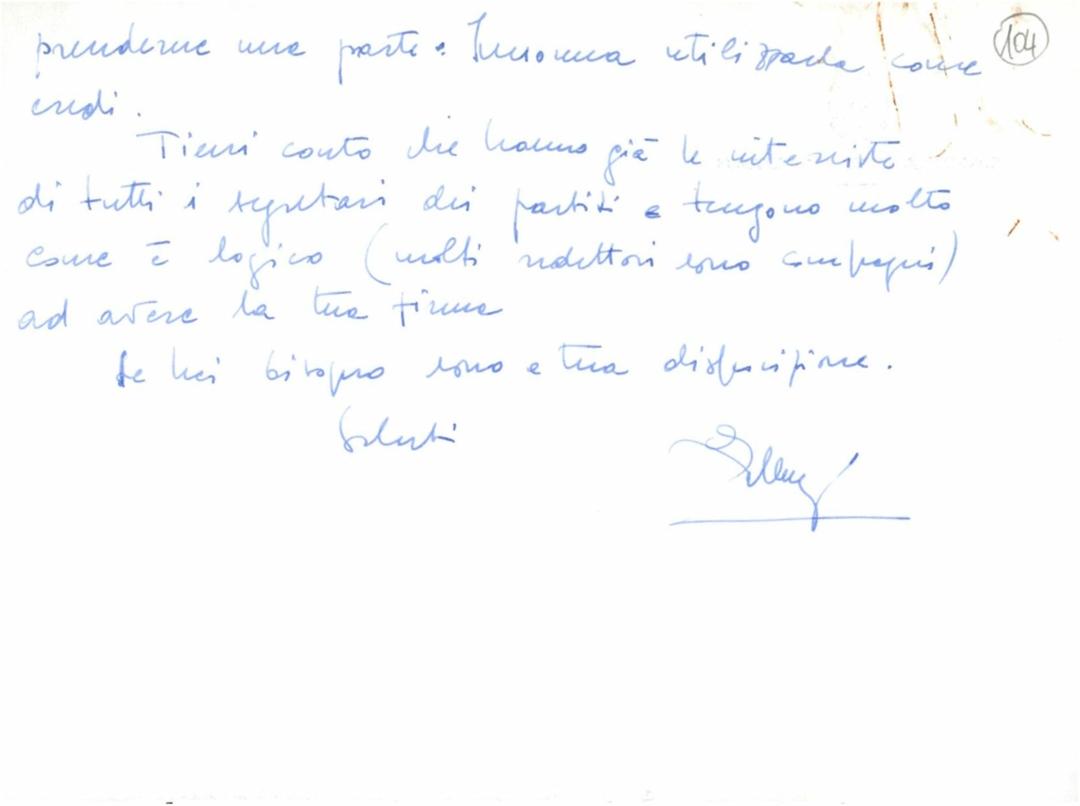 104
prenderne una parte. Insomma utilizzala come
credi.
Tieni conto che hanno già le interviste
di tutti i segretari dei partiti e tengono molto
come è logico (molti redattori sono compagni)
ad avere la tua firma
Se hai bisogno sono a tua disposizione.
Saluti